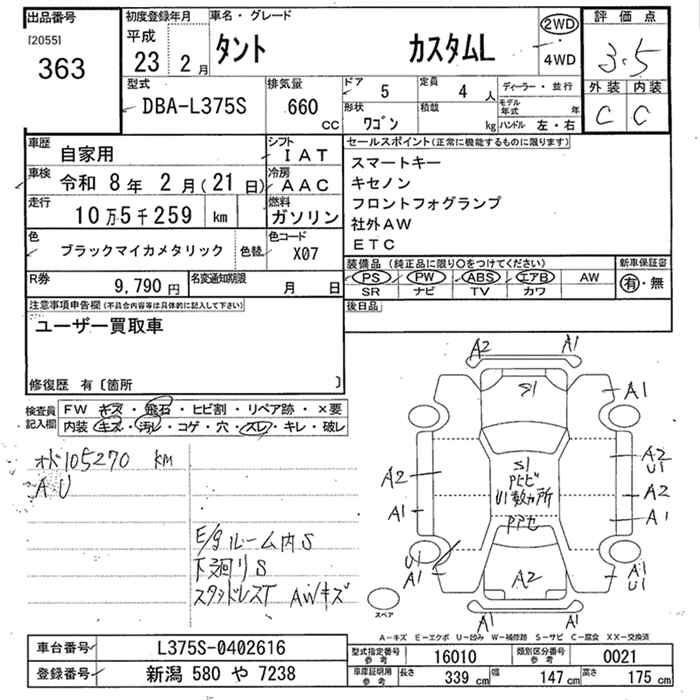 出品番号
[2055]
363
初度登録年月
平成
23 2 月
車名・グレード
タント カスタムL
2WD
4WD
評価点
3.5
外装 内装
C C
型式
DBA-L375S
排気量
660 CC
ドア 5
形状 ワゴン
定員 4 人
積載 kg
ディーラー・並行
モデル年式 年
ハンドル 左・右
車歴 自家用
シフト IAT
車検 令和 8 年 2 月 (21 日)
冷房 AAC
走行 10 万 5 千 259 km
燃料 ガソリン
色 ブラックマイカメタリック 色替
色コード X07
R券 9,790 円
名変通知期限 月 日
セールスポイント(正常に機能するものに限ります)
スマートキー
キセノン
フロントフォグランプ
社外AW
ETC
装備品 (純正品に限り○をつけてください)
PS PW ABS エアB AW
SR ナビ TV カワ
新車保証書
有・無
後日品
注意事項申告欄(不具合内容等は具体的に記入して下さい)
ユーザー買取車
修復歴 有〔箇所 〕
検査員記入欄
FW キズ・飛石・ヒビ割・リペア跡・×要
内装・キズ・汚レ・コゲ・穴・スレ・キレ・破レ
オド105270 KM
AU
E/gルーム内S
下廻りS
スタッドレスT AWキズ
A2 A1
S1
A1
A2
U1
A2
A1
A2
A1
S1
Pヒビ
U1数ヵ所
PP セ
U1
A1
A2
A1
U1
A1 A1
スペア
A-キズ E-エクボ U-凹み W-補修跡 S-サビ C-腐食 XX-交換済
車台番号 L375S-0402616
登録番号 新潟 580 や 7238
型式指定番号 参考 16010
類別区分番号 参考 0021
車庫証明用 参考 長さ 339 cm 幅 147 cm 高さ 175 cm